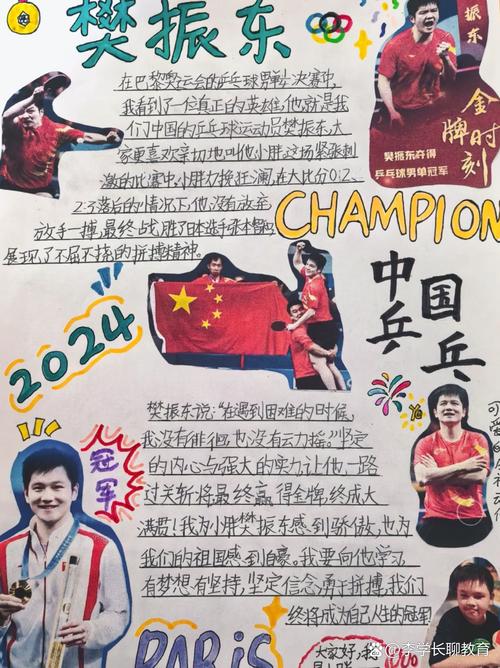 樊振东
在巴黎奥运会的乒乓球男单决赛中,
我看到了一位真正的英雄,他就是我
们中国的乒乓球运动员樊振东,大
家更喜欢亲切地叫他小胖。这场紧张刺
激的比赛中,小胖力挽狂澜,在大比分0:2、
2:3落后的情况下,他没有放弃
放手一搏,最终战胜了日本选手张本智和
展现了不屈不挠的拼搏精神。
振东
金牌时刻
樊振东夺得
乒乓球男单冠军
CHAMPION
中国乒乓
2024
樊振东说:“在遇到困难的时候,
我没有徘徊,也没有动摇。”坚定
的内心与强大的实力让他一路
过关斩将最终赢得金牌,终成大
满贯!我为小胖樊振东感到骄傲,也为
我们的祖国感到自豪。我要向他学习,
有梦想有坚持,坚定信念勇于拼搏,我们
终将成为自己人生的冠军
冠军
可爱
PARIS
大家好,我
@李学长聊教育